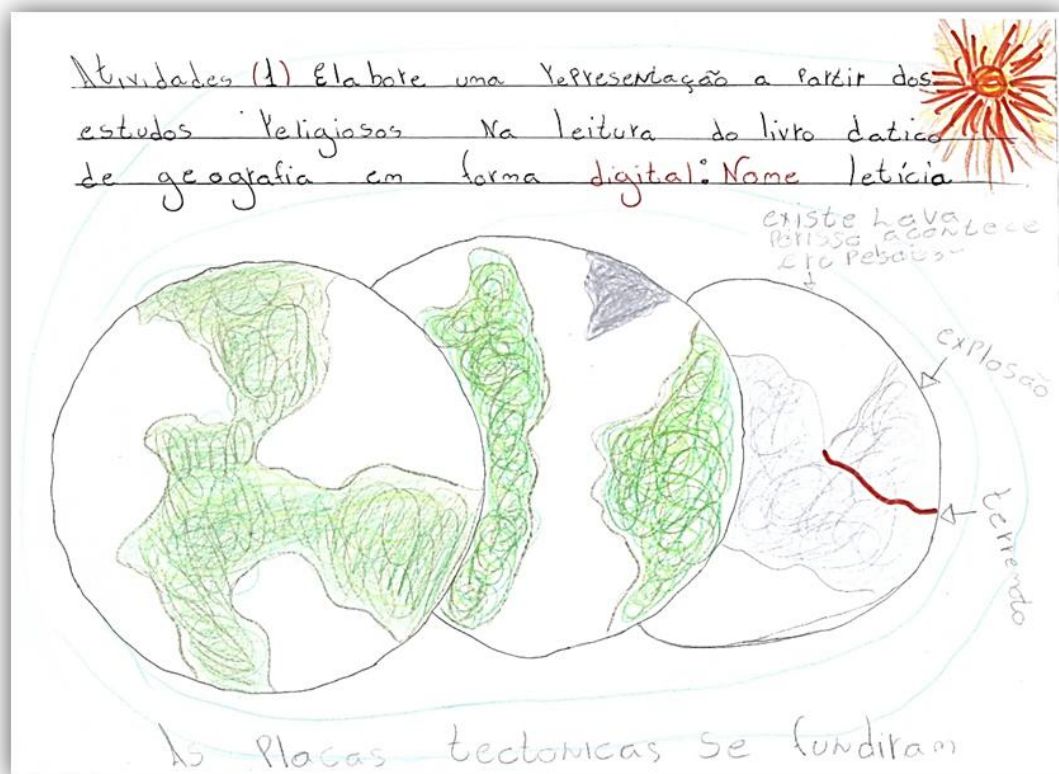 Atividades (1) Elabore uma representação a partir dos
estudos religiosos na leitura do livro datico
de geografia em forma digital: Nome letícia
existe Lava
Porisso acontece
explosão
terremoto
As Placas tectonicas se fundiram